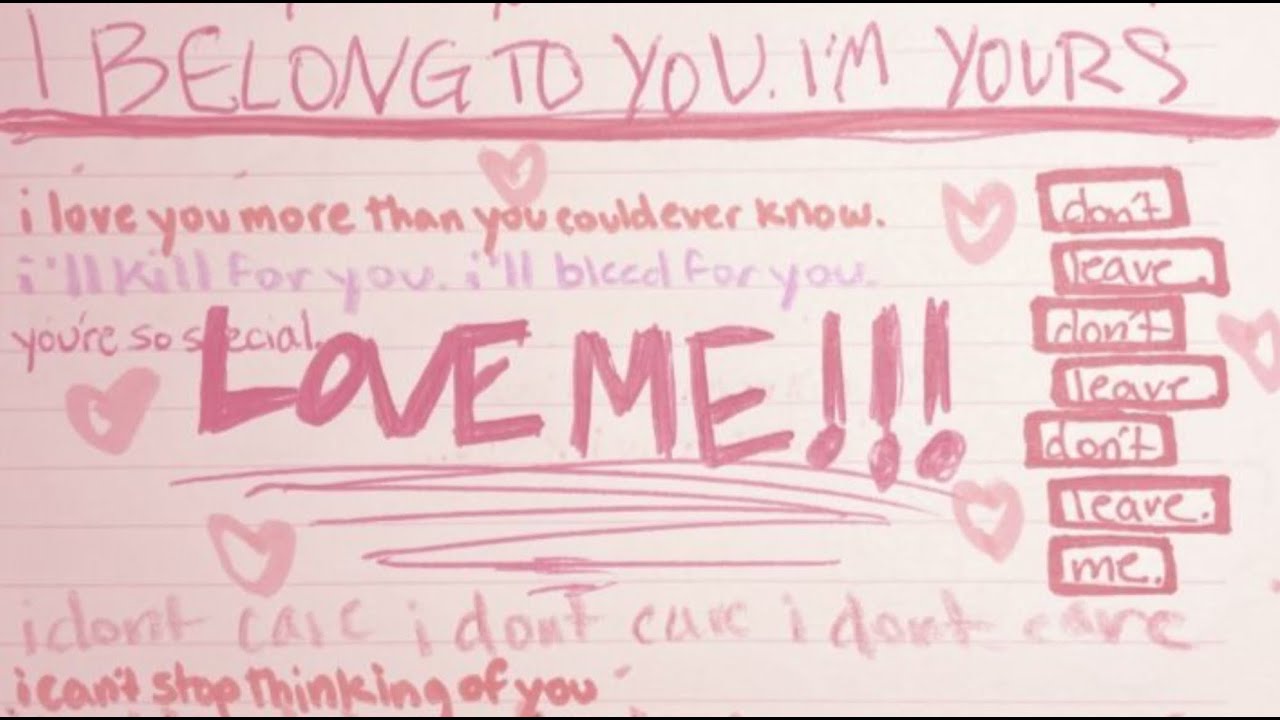 I BELONG TO YOU. I'M YOURS
i love you more than you could ever know.
i'll kill for you. i'll bleed for you.
you're so special.
LOVE ME!!!
don't
leave.
don't
leave
don't
leave.
me.
i don't care i don't care i don't care
i can't stop thinking of you